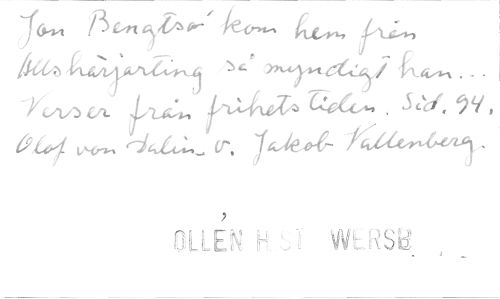 Jon Bengtsò kom hem från
Allshärjarting så myndigt han...
Verser från frihetstiden. Sid. 94.
Olof von Dalin o. Jakob Wallenberg.
OLLÉN HIST WERSB